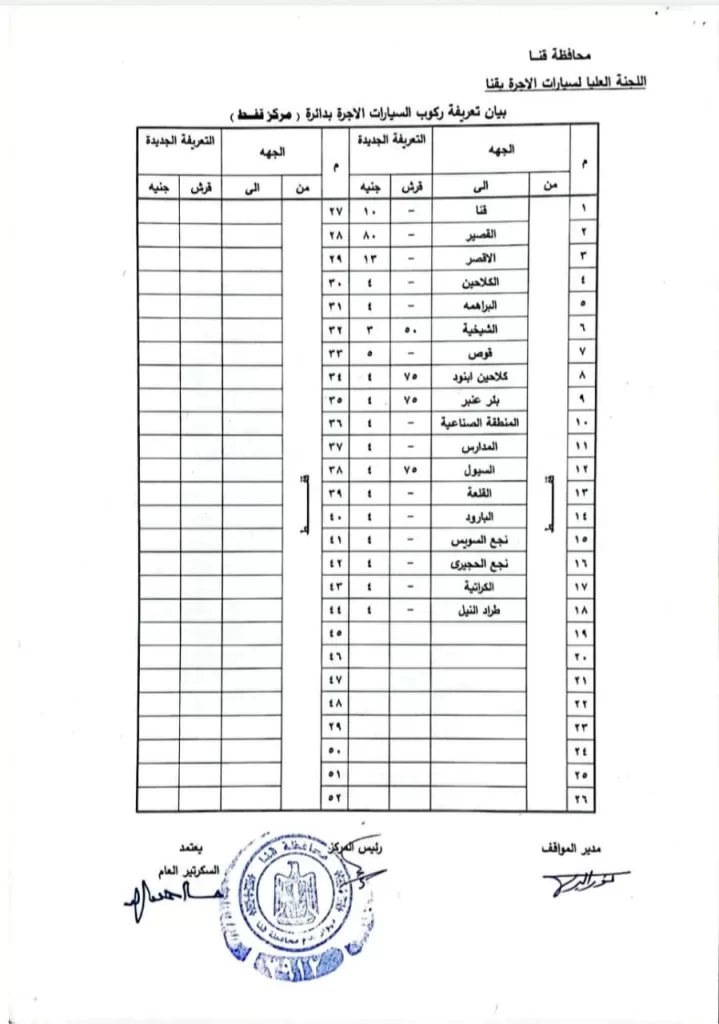 محافظة قنا
اللجنة العليا لسيارات الاجرة بقنا
بيان تعريفة ركوب السيارات الاجرة بدائرة ( مركز قفط )
م الجهه التعريفة الجديدة م الجهه التعريفة الجديدة
من الى قرش جنيه من الى قرش جنيه
قفط
قفط
١ قنا - ١٠ ٢٧
٢ القصير - ٨٠ ٢٨
٣ الاقصر - ١٣ ٢٩
٤ الكلاحين - ٤ ٣٠
٥ البراهمه - ٤ ٣١
٦ الشيخية ٥٠ ٣ ٣٢
٧ قوص - ٥ ٣٣
٨ كلاحين ابنود ٧٥ ٤ ٣٤
٩ بئر عنبر ٧٥ ٤ ٣٥
١٠ المنطقة الصناعية - ٤ ٣٦
١١ المدارس - ٤ ٣٧
١٢ السيول ٧٥ ٤ ٣٨
١٣ القلعة - ٤ ٣٩
١٤ البارود - ٤ ٤٠
١٥ نجع السويس - ٤ ٤١
١٦ نجع الحجيرى - ٤ ٤٢
١٧ الكراتية - ٤ ٤٣
١٨ طراد النيل - ٤ ٤٤
١٩ ٤٥
٢٠ ٤٦
٢١ ٤٧
٢٢ ٤٨
٢٣ ٢٩
٢٤ ٥٠
٢٥ ٥١
٢٦ ٥٢
مدير المواقف رئيس المركز يعتمد
السكرتير العام
محافظة قنا
ديوان عام محافظة قنا